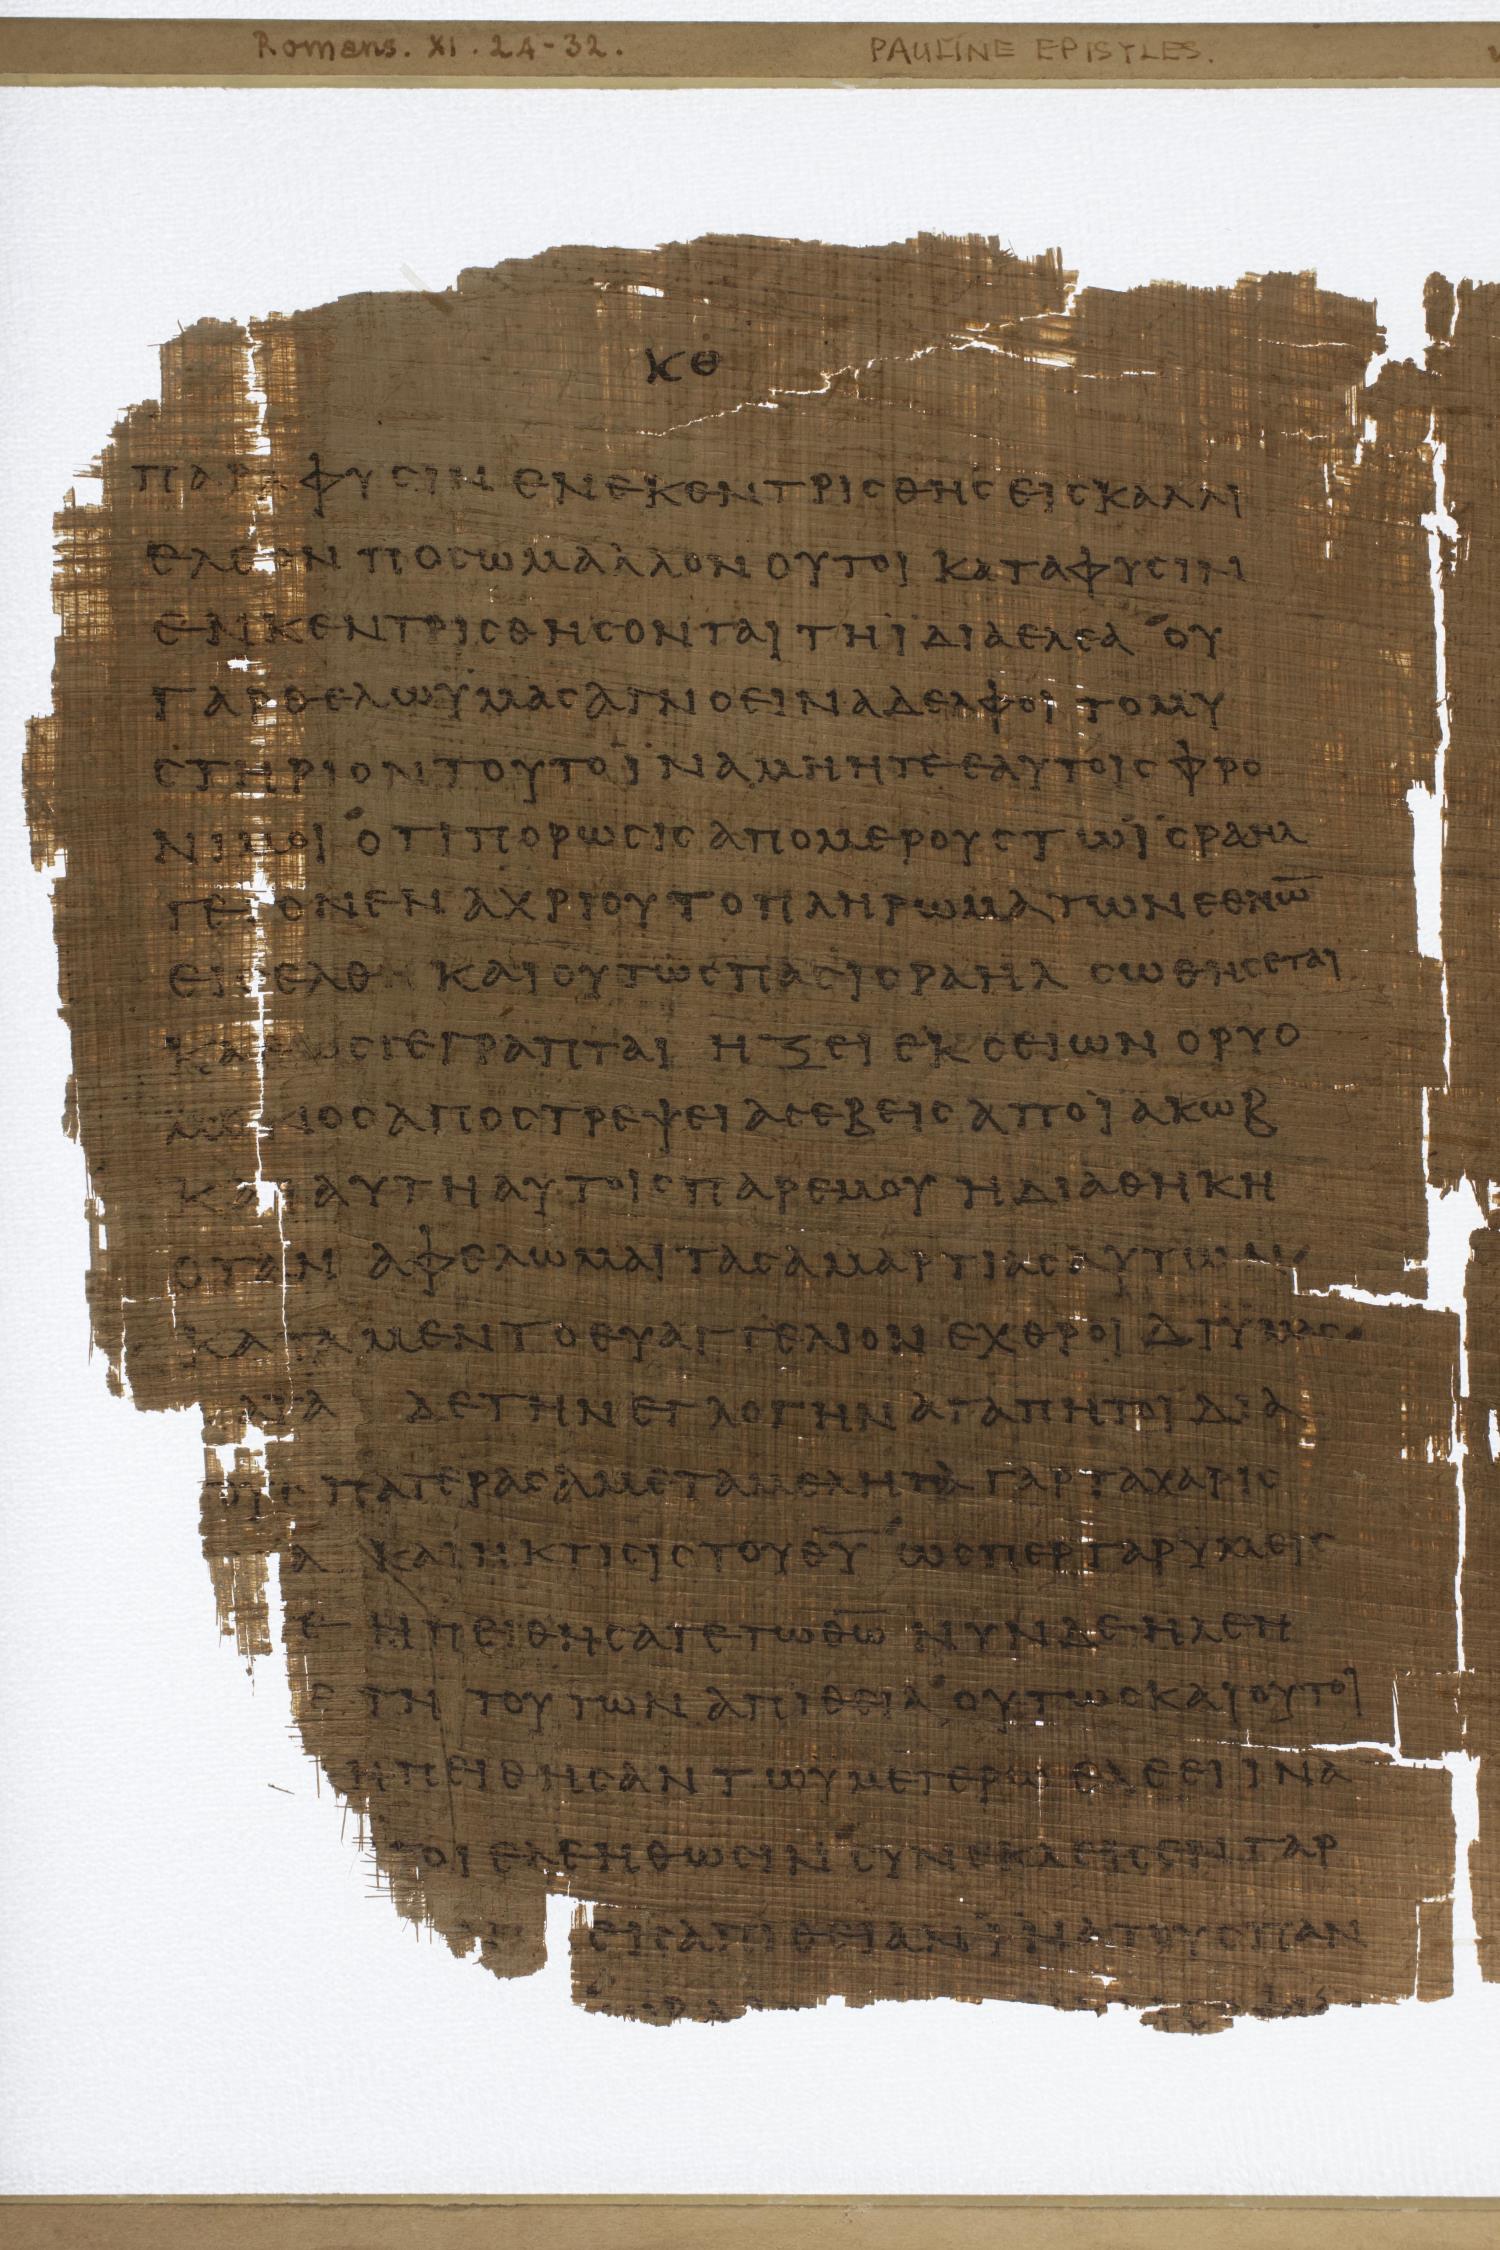 Romans. XI. 24-32. PAULINE EPISTLES.
κθ
παρα φυσιν ενεκεντρισθης εις καλλι
ελεον ποσω μαλλον ουτοι κατα φυσιν
ενκεντρισθησονται τηϊ δια ελεα ου
γαρ θελω ϋμας αγνοειν αδελφοι το μυ
στηριον τουτο ϊνα μη ητε εαυτοις φρο
νιμοι οτι πορωσις απο μερους τω ϊσραηλ
γεγονεν αχρι ου το πληρωμα των εθνω̅
εισελθ και ουτως πας ισραηλ σωθησεται
καθως γεγραπται ηξει εκ σειων ο ρυο
μενος αποστρεψει ασεβεις απο ϊακωβ
και αυτη αυτοις παρ εμου η διαθηκη
οταν αφελωμαι τας αμαρτιας αυτων
κατα μεν το ευαγγελιον εχθροι δι ϋμας
κατα δε την εγλογην αγαπητοι δια
τους πατερας αμεταμελητα γαρ τα χαρισ
α και η κτισις του θ̅υ̅ ωσπερ γαρ υμεις
ε ηπειθησατε τω θ̅ω̅ νυν δε ηλεη
ε τη τουτων απιθεια ουτως και ουτοι
ηπειθησαν τω υμετερω ελεει ινα
τοι ελεηθωσιν συνεκλεισεν γαρ
εις απιθειαν ϊνα τους παν